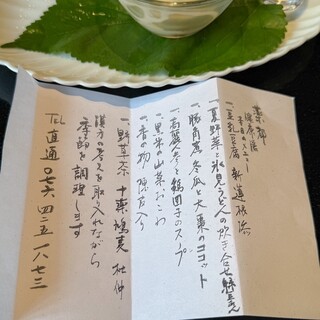 薬都
健康膳
一、豆乳豆腐
一、夏野菜と氷見うどんの炊き合せ
一、豚角煮冬瓜と大棗のココット
一、高麗人参と鶏団子のスープ
一、黒米の山菜おこわ
一、香の物
一、野草茶 十薬 鳩麦 杜仲
漢方の考えを取り入れながら
料理を調理します
TEL 直通〇七六-四二五-一八七三